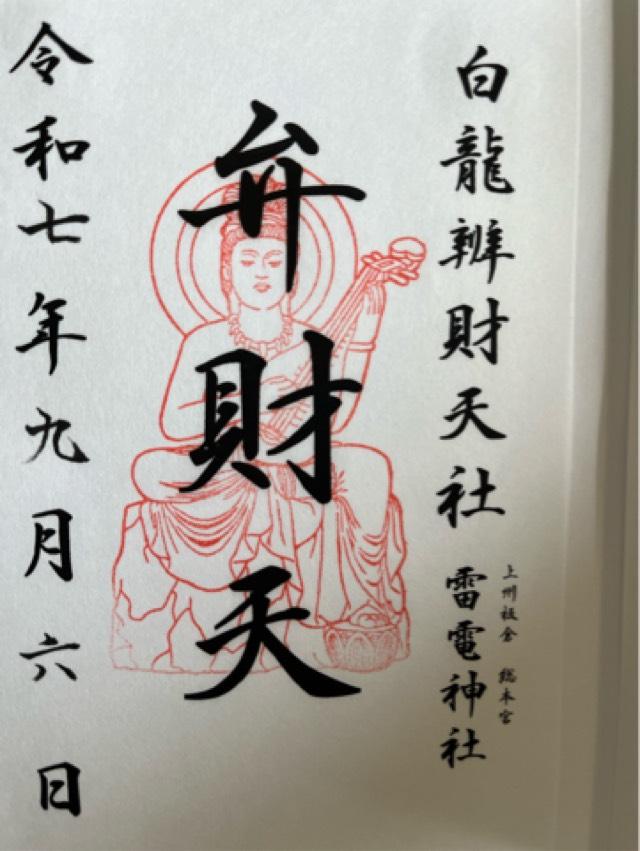 白龍辨財天社
上州板倉 総本宮
雷電神社
弁財天
令和七年九月六日